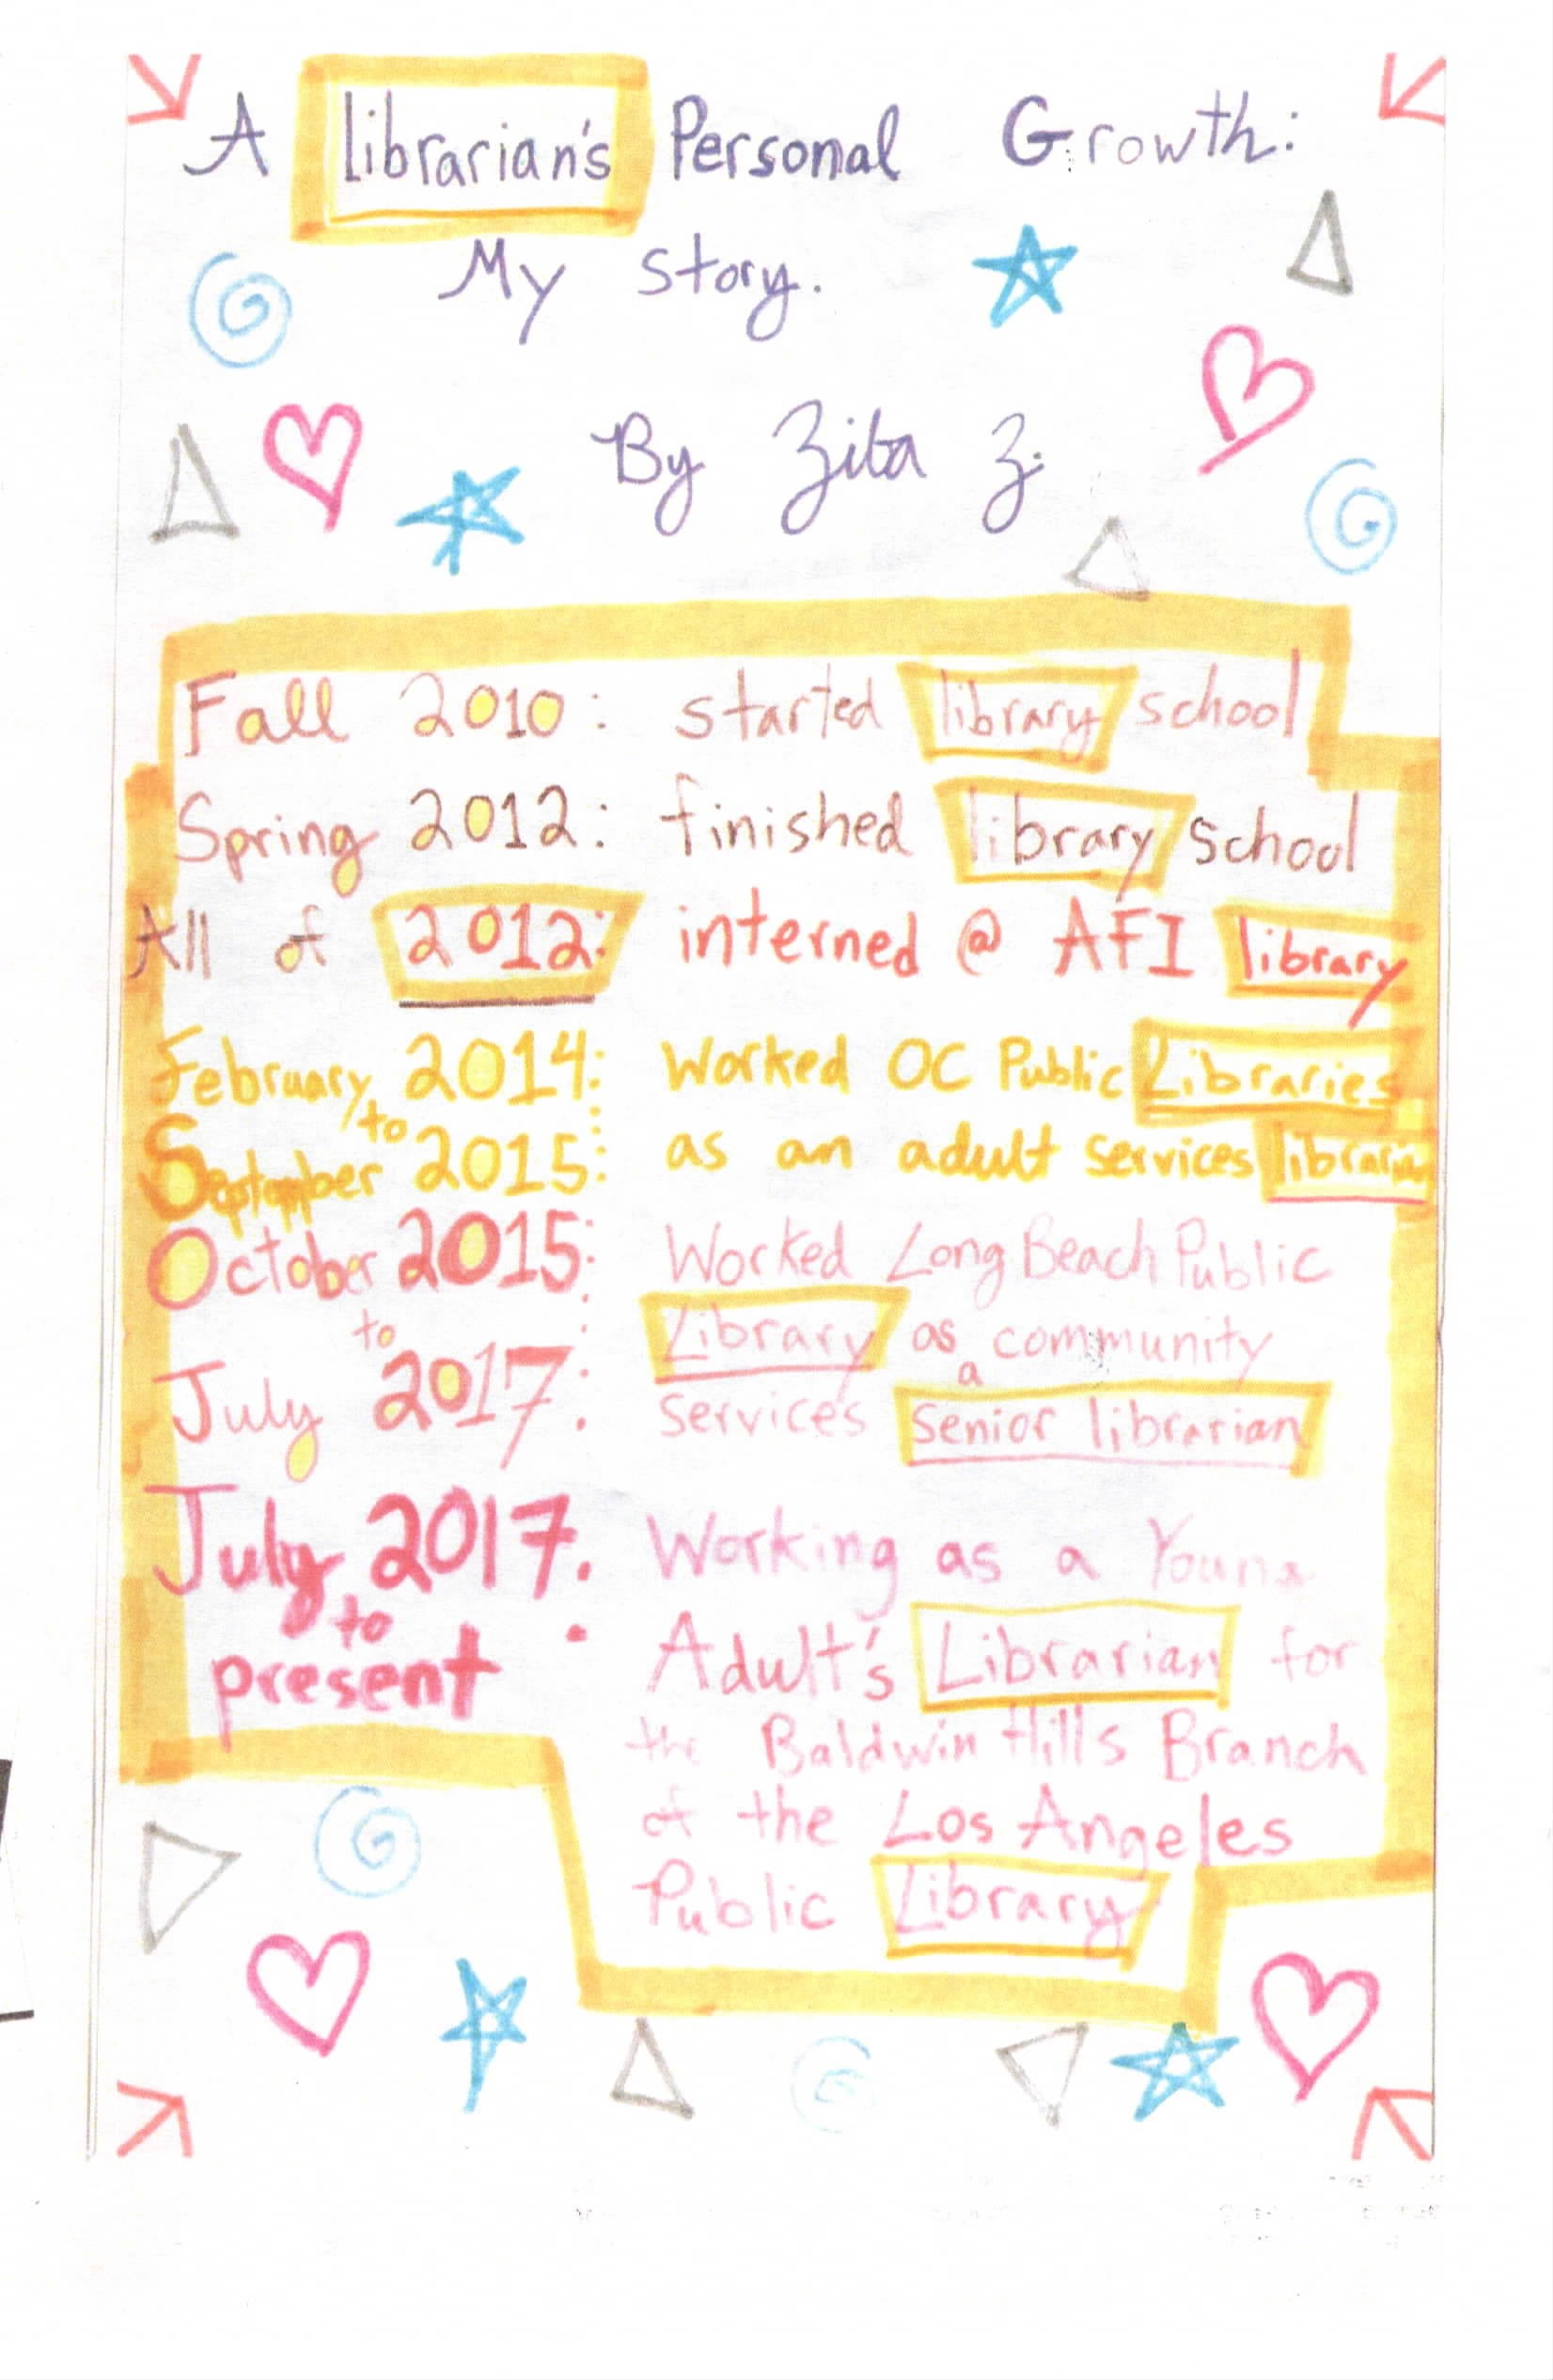 A librarian's Personal Growth:
My story.
By Zita Z.
Fall 2010: started library school
Spring 2012: finished library school
All of 2012: interned @ AFI library
February 2014: Worked OC Public Libraries
to
September 2015: as an adult services librarian
October 2015: Worked Long Beach Public
to
Library as a community
July 2017: services senior librarian
July 2017: Working as a Young
to
present
Adult's Librarian for
the Baldwin Hills Branch
of the Los Angeles
Public Library